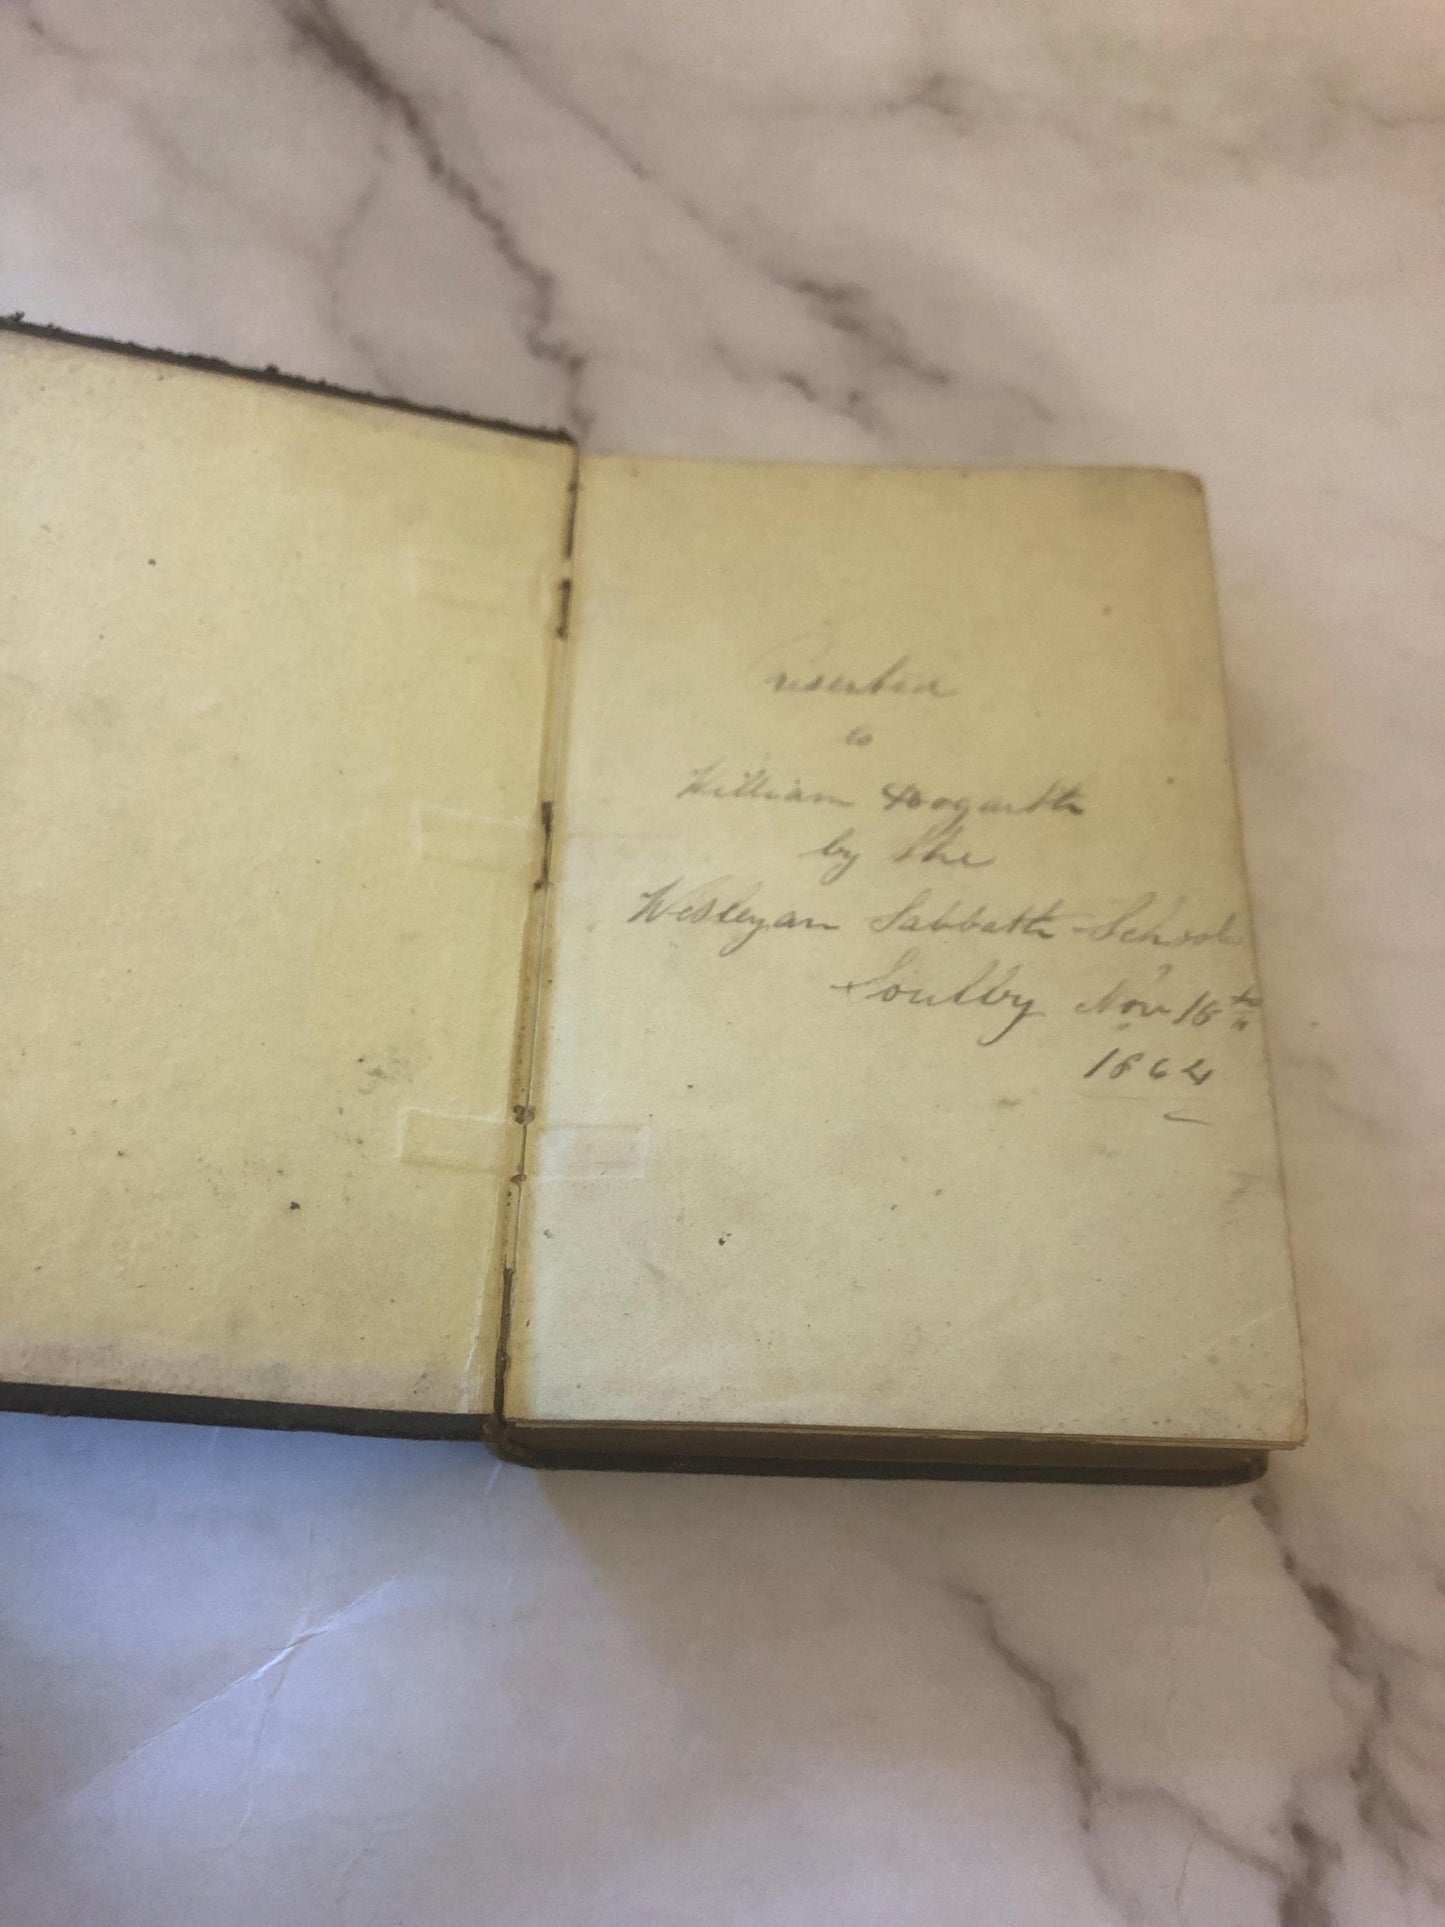 Presented
to
William Hogarth
by the
Wesleyan Sabbath-School
Soulby Nov 16th
1864